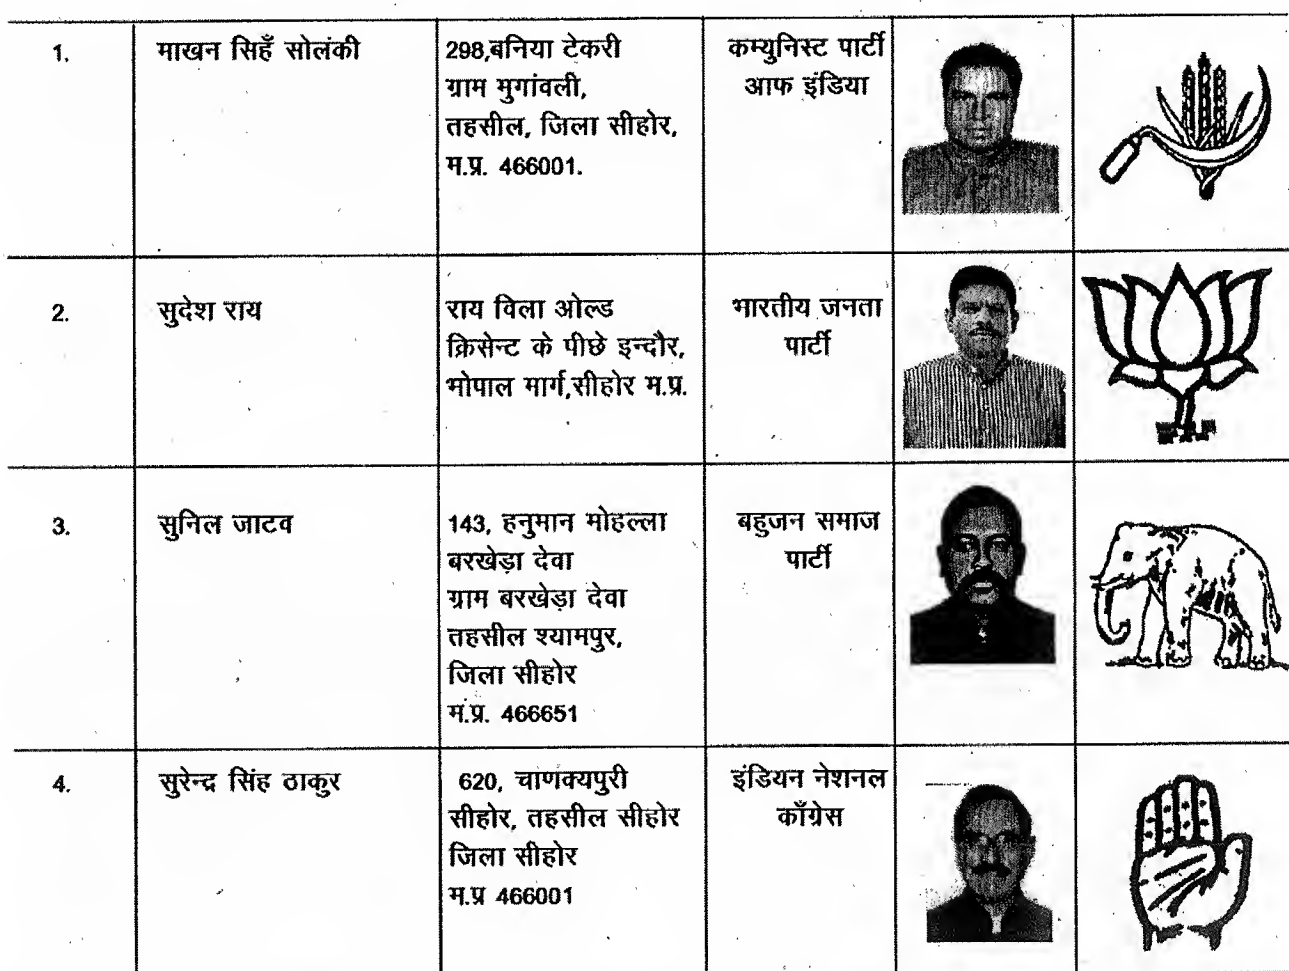 1.
माखन सिहँ सोलंकी
298,बनिया टेकरी
ग्राम मुगांवली,
तहसील, जिला सीहोर,
म.प्र. 466001.
कम्युनिस्ट पार्टी
आफ इंडिया
2.
सुदेश राय
राय विला ओल्ड
क्रिसेन्ट के पीछे इन्दौर,
भोपाल मार्ग,सीहोर म.प्र.
भारतीय जनता
पार्टी
3.
सुनिल जाटव
143, हनुमान मोहल्ला
बरखेड़ा देवा
ग्राम बरखेड़ा देवा
तहसील श्यामपुर,
जिला सीहोर
म.प्र. 466651
बहुजन समाज
पार्टी
4.
सुरेन्द्र सिंह ठाकुर
620, चाणक्यपुरी
सीहोर, तहसील सीहोर
जिला सीहोर
म.प्र 466001
इंडियन नेशनल
काँग्रेस